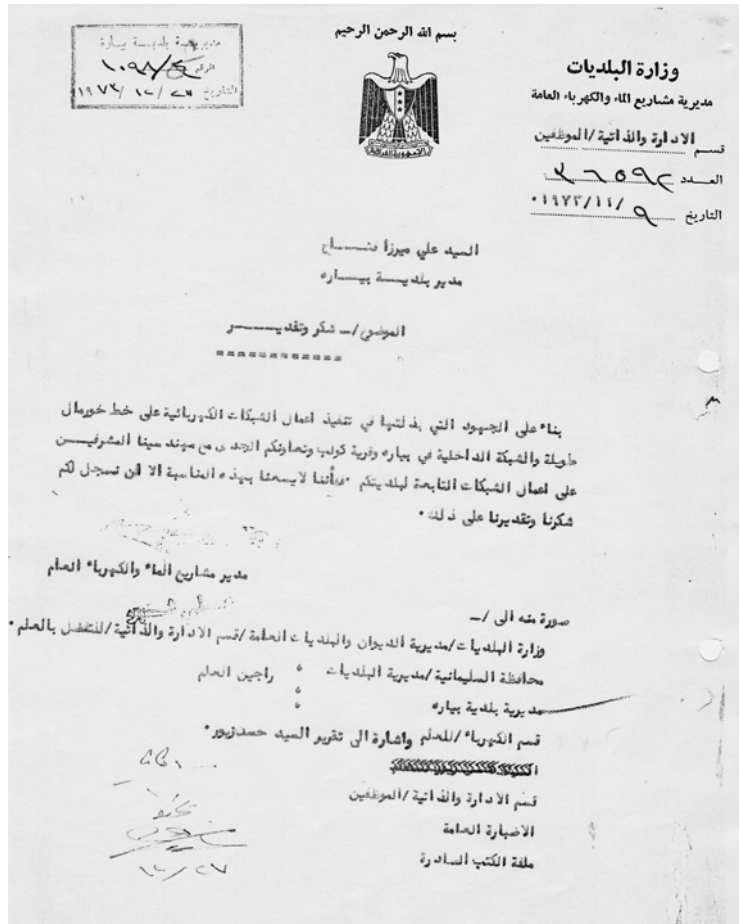 بسم الله الرحمن الرحيم
مديرية بلدية بيارة
الرقم ١٠٩٨
التاريخ ٢٧ / ١٢ / ١٩٧٣
الجمهورية العراقية
وزارة البلديات
مديرية مشاريع الماء والكهرباء العامة
قسم الادارة والذاتية/الموظفين
العــدد ٣٦٥٩٢
التاريخ ٩/١١/١٩٧٣٠
السيد علي ميرزا فتـــاح
مدير بلديـــة بيـــاره
الموضوع/ــ شكر وتقديـــــر
============
بناء على الجهود التي بذلتها في تنفيذ اعمال الشبكات الكهربائية على خط خورمال
طويلة والشبكة الداخلية في بياره وقرية كولب وتعاونكم الجدى مع مهندسينا المشرفيــن
على اعمال الشبكات التابعة لبلديتكم ٠فأننا لايسعنا بهذه المناسبة الا ان نسجل لكم
شكرنا وتقديرنا على ذلك٠
مدير مشاريع الماء والكهرباء العام
صورة منه الى /ــ
وزارة البلديات/مديرية الديوان والبلديات العامة/قسم الادارة والذاتية/للتفضل بالعلم٠
محافظة السليمانية/مديرية البلديات " راجين العلم
مديرية بلدية بياره "
قسم الكهرباء/للعلم واشارة الى تقرير السيد حسدزيور٠
قسم الادارة والذاتية/الموظفين
الاضبارة العامة
ملفة الكتب الصادرة
٢٧/١٢